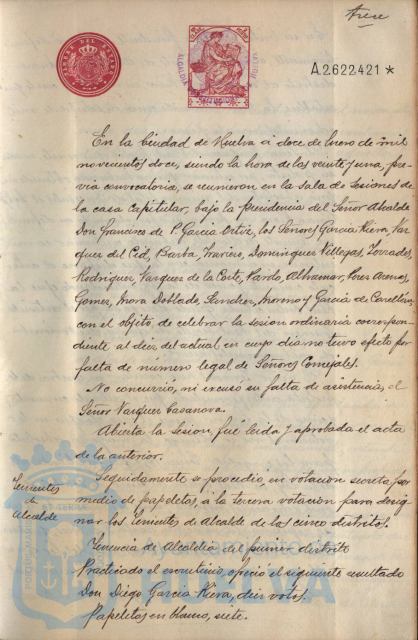 Trece
TIMBRE DEL ESTADO
A.2622421 *
En la Ciudad de Huelva á doce de Enero de mil
novecientos doce, siendo la hora de las veinte y una, pre-
via convocatoria, se reunieron en la sala de Sesiones de
la Casa Capitular, bajo la Presidencia del Señor Alcalde
Don Francisco de P. García Ortiz, los Señores García Riera, Vaz
quez del Cid, Barba, Traviero, Dominguez Villegas, Terrades,
Rodriguez, Vazquez de la Corte, Pardo, Almunar, Perez Arenas,
Gomez, Mora Doblado, Sanchez, Moreno y García de Castellano,
con el objeto de celebrar la sesion ordinaria correspon-
diente al diez del actual en cuyo dia no tuvo efecto por
falta de número legal de Señores Concejales.
No concurrió, ni excusó su falta de asistencia, el
Señor Vazquez Casanova.
Abierta la sesion, fué leida y aprobada el acta
de la anterior.
Tenientes
de
Alcalde
Seguidamente se procedió, en votacion secreta por
medio de papeletas, á la tercera votacion para desig-
nar los Tenientes de Alcalde de los cinco distritos.
Tenencia de Alcaldia del primer distrito
Practicado el escrutinio, ofreció el siguiente resultado
Don Diego García Riera, diez votos.
Papeletas en blanco, siete.
Ayuntamiento de
HUELVA